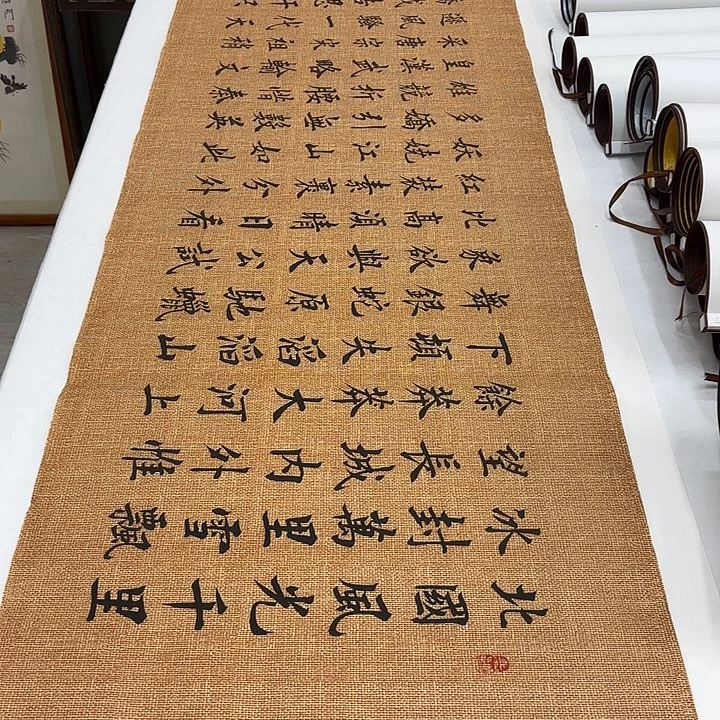 北國風光千里
冰封萬里雪飄
望長城內外惟
餘莽莽大河上
下頓失滔滔山
舞銀蛇原馳蠟
象欲與天公試
比高須晴日看
紅妝素裹分外
妖嬈江山如此
多嬌引無數英
雄競折腰惜秦
皇漢武略輸文
采唐宗宋祖稍
遜風騷一代天